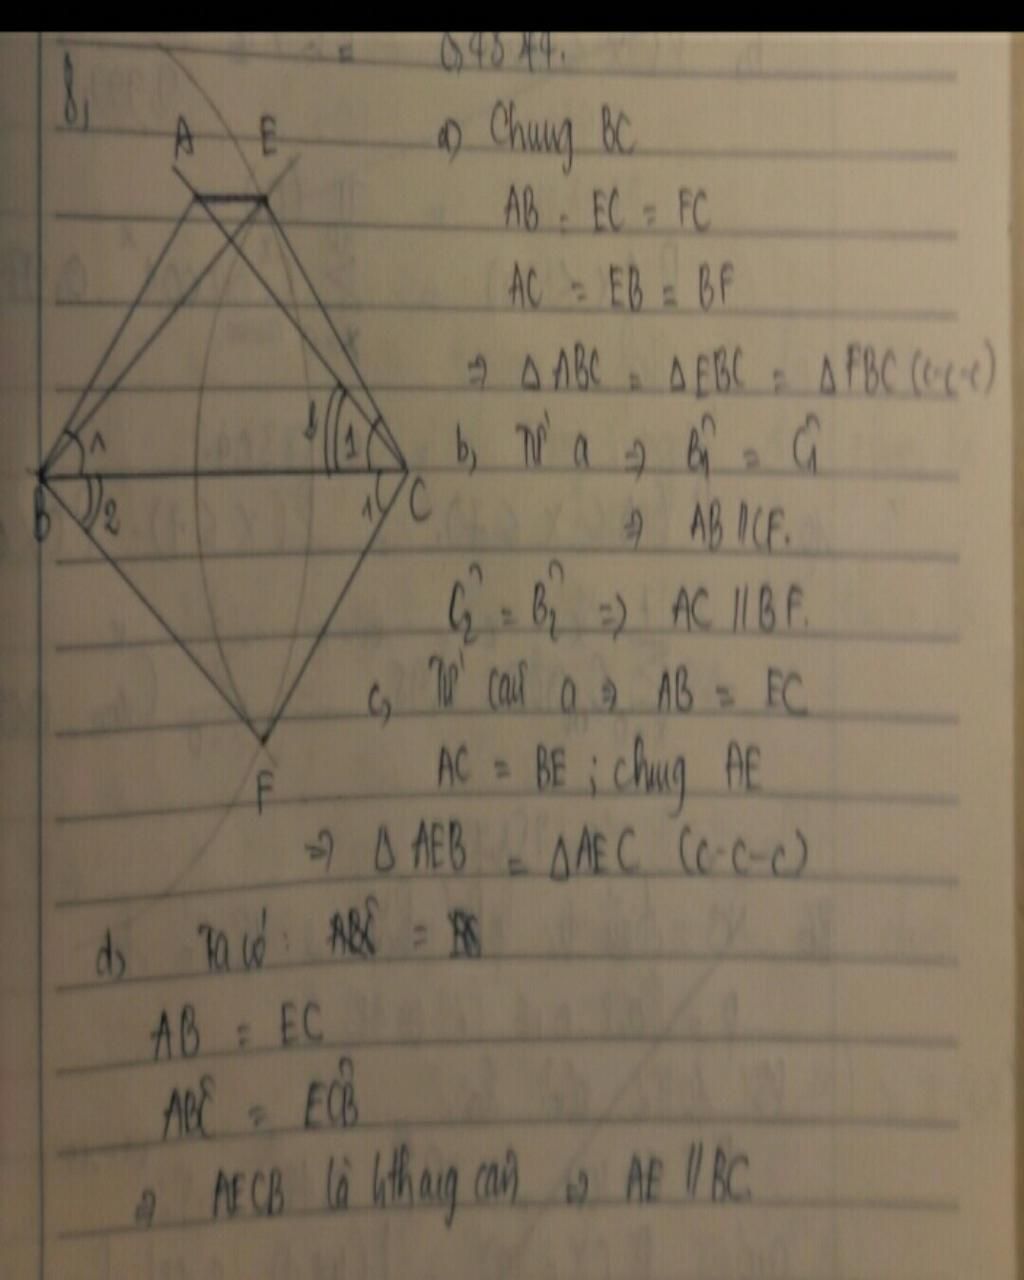 = 0,4344.
8,
A E
a) Chung BC
AB = EC = FC
AC = EB = BF
=> Δ ABC = Δ EBC = Δ FBC (c-c-c)
1 1
B 2 1 C
b, Từ a => B̂1 = Ĉ1
=> AB // CF.
Ĉ2 = B̂2 => AC // BF.
c, Từ câu a => AB = EC
F
AC = BE ; chung AE
=> Δ AEB = Δ AEC (c-c-c)
d, Ta có:
AB = EC
ABĈ = EĈB
=> AECB là hthang cân => AE // BC.